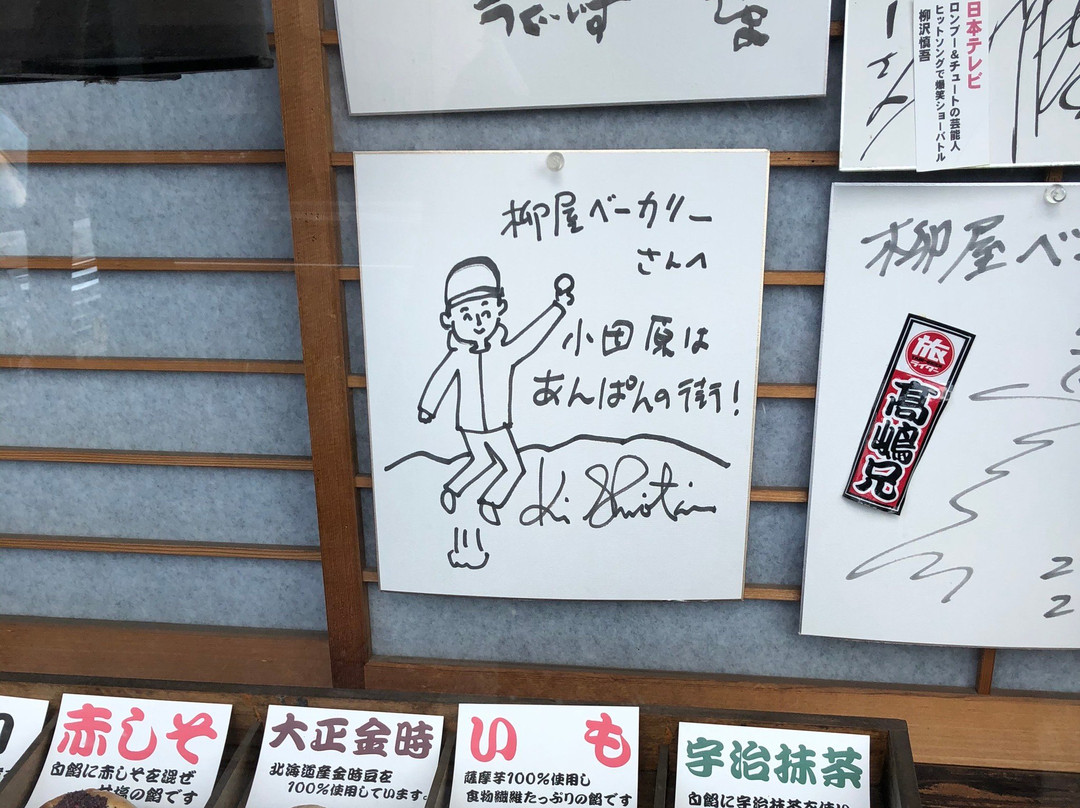 うぐいす
日本テレビ
ロンブー&チュートの芸能人
ヒットソングで爆笑ショーバトル
柳沢慎吾
柳屋ベーカリー
さんへ
小田原は
あんぱんの街!
柳屋ベ
旅
ライダー
髙嶋兄
赤しそ
白餡に赤しそを混ぜ
の餡です
大正金時
北海道産金時豆を
100%使用しています。
いも
薩摩芋100%使用し
食物繊維たっぷりの餡です
宇治抹茶
白餡に宇治抹茶を使用